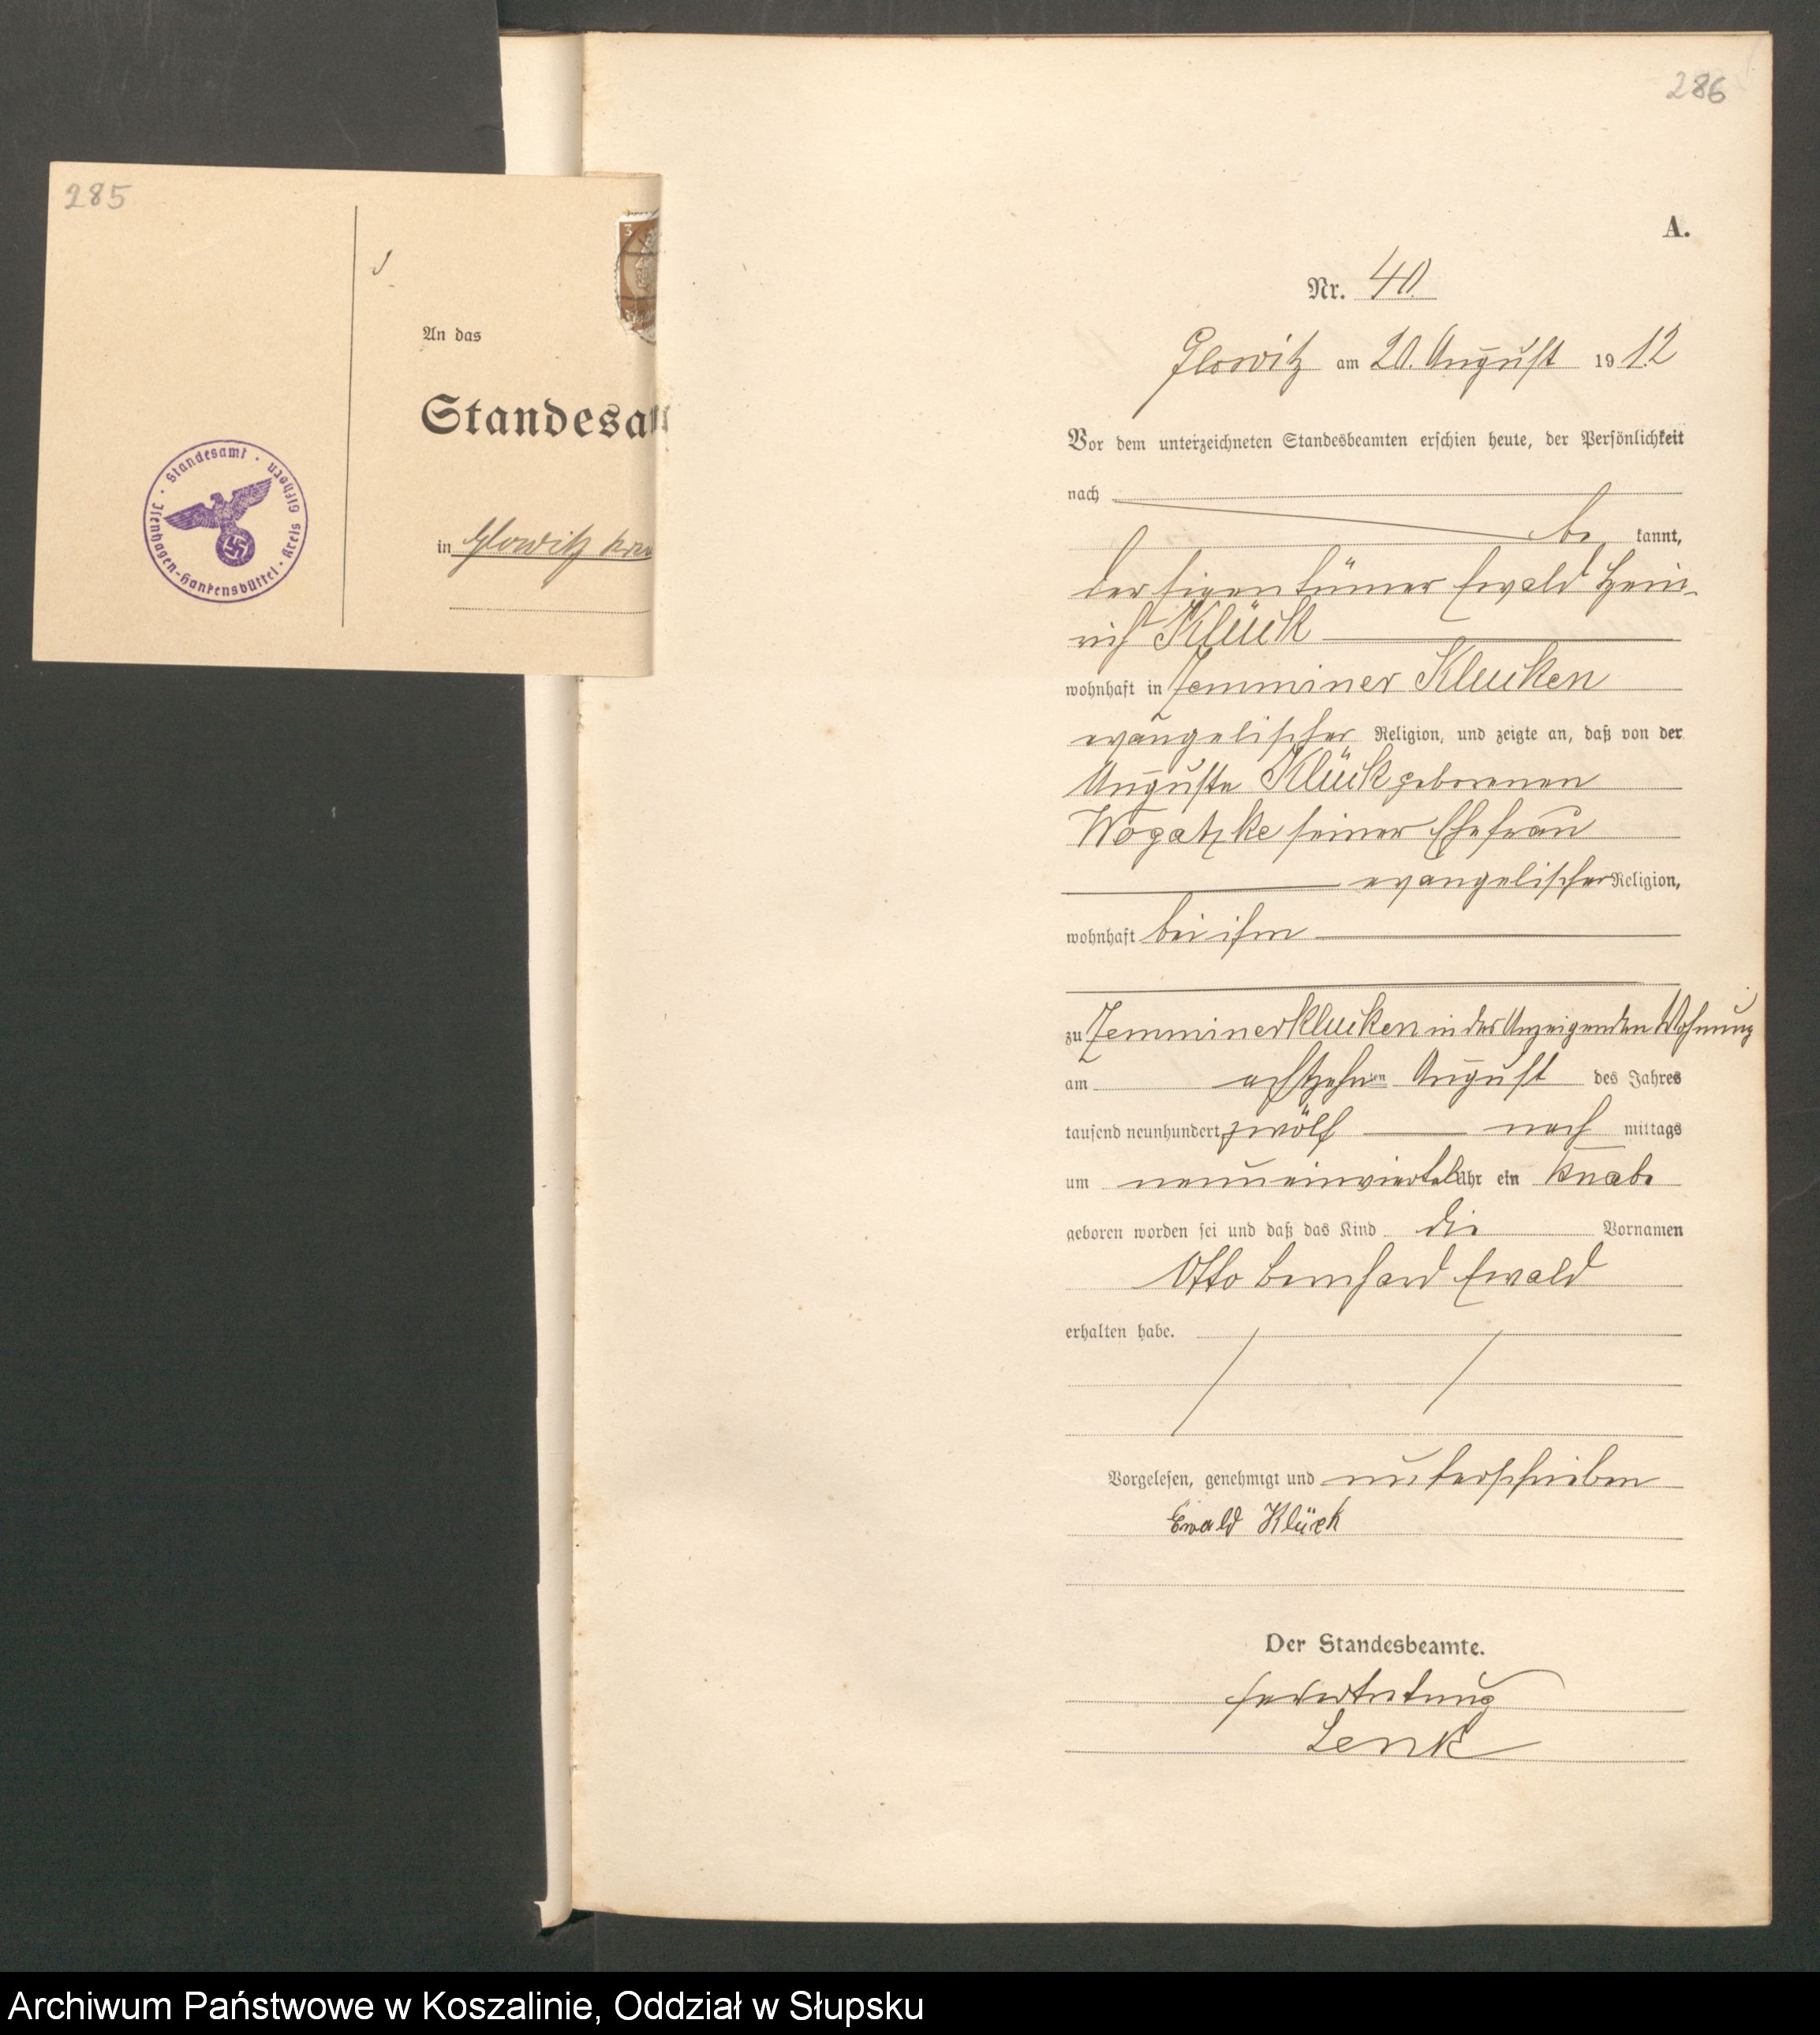 285
An das
Standesa
in Glowitz
Standesamt · Isenhagen-Hankensbüttel · Kreis Gifhorn ·
3
286
A.
Nr. 40.
Glowitz am 20. August 1912
Vor dem unterzeichneten Standesbeamten erschien heute, der Persönlichkeit
nach
be kannt,
der Eigentümer Ewald Hein-
rich Klück
wohnhaft in Zemminer Klucken
evangelischer Religion, und zeigte an, daß von der
Auguste Klück geborenen
Wogatzke seiner Ehefrau
evangelischer Religion,
wohnhaft bei ihm
zu Zemminerklucken in des Anzeigenden Wohnung
am achtzehnten August des Jahres
tausend neunhundert zwölf nach mittags
um neun einviertel Uhr ein Knabe
geboren worden sei und daß das Kind die Vornamen
Otto Bernhard Ewald
erhalten habe.
Vorgelesen, genehmigt und unterschrieben
Ewald Klück
Der Standesbeamte.
Lenk
Archiwum Państwowe w Koszalinie, Oddział w Słupsku